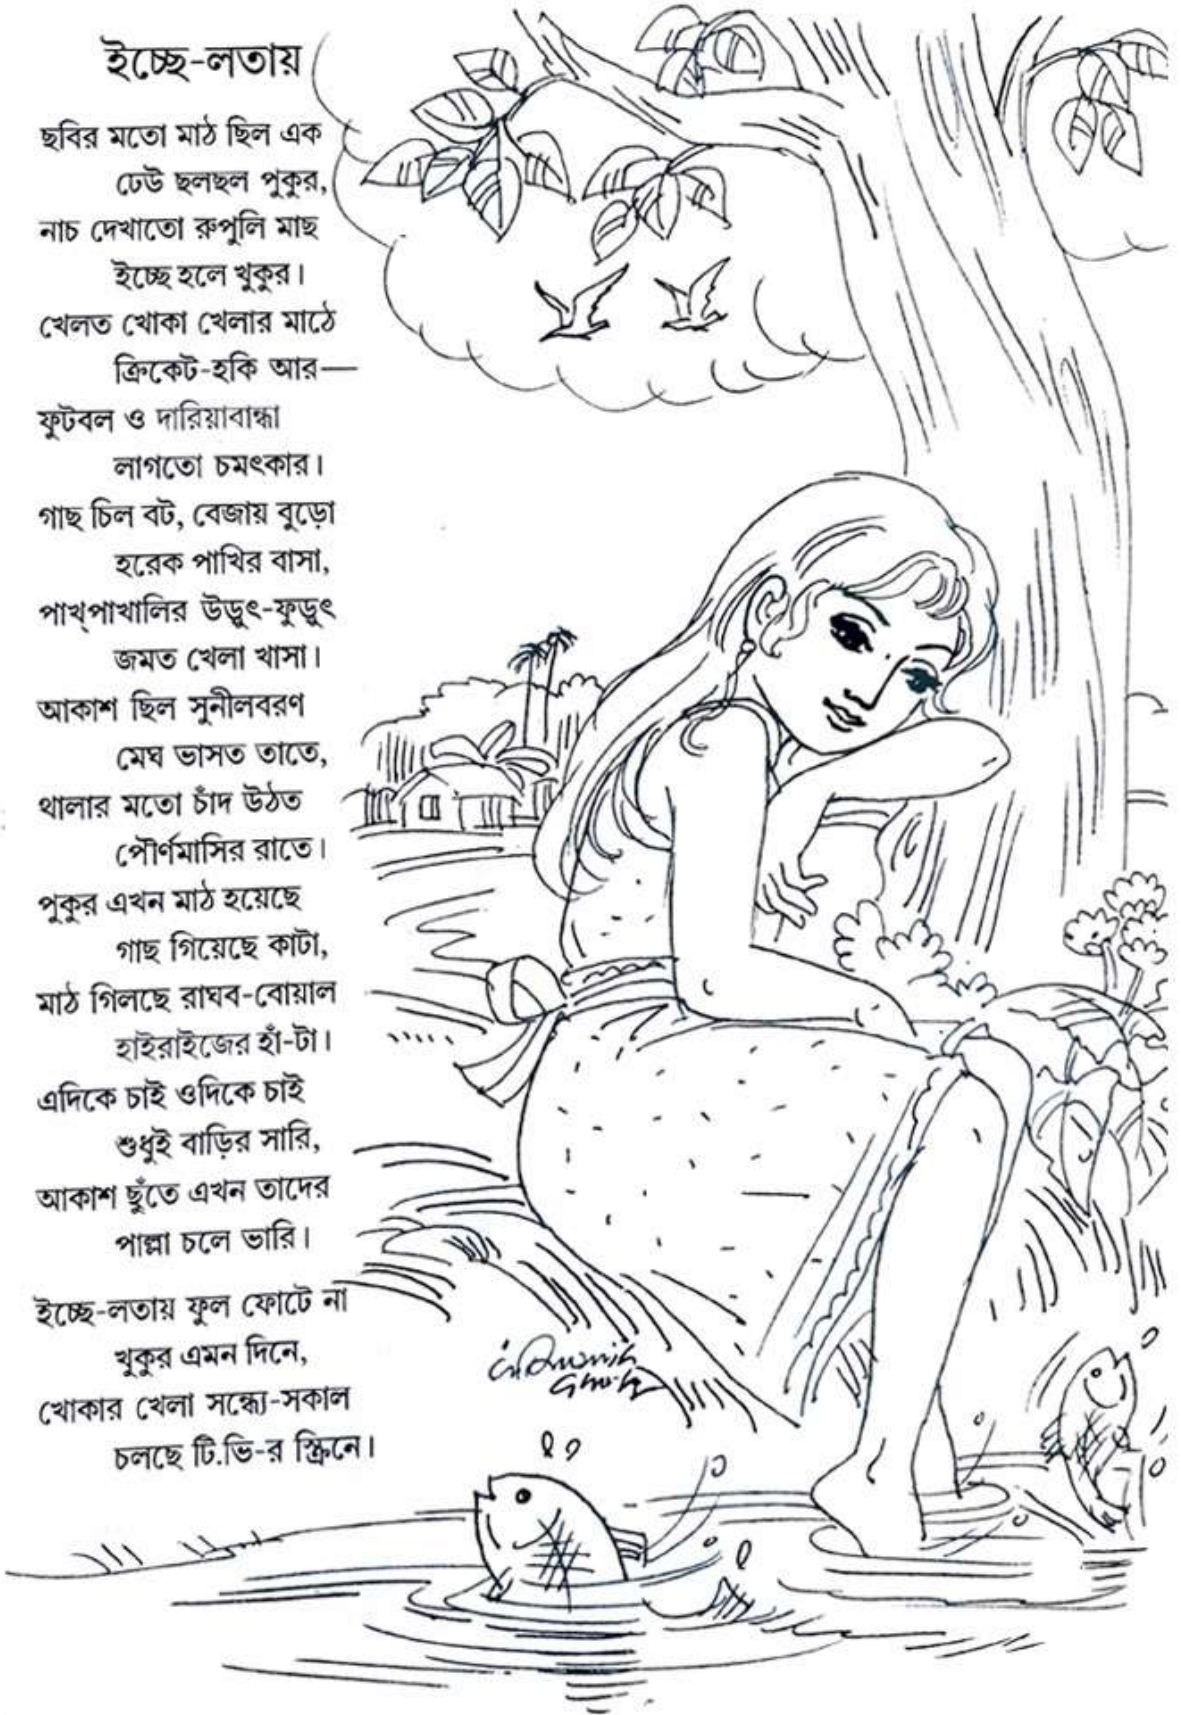 ইচ্ছে-লতায়
ছবির মতো মাঠ ছিল এক
ঢেউ ছলছল পুকুর,
নাচ দেখাতো রুপুলি মাছ
ইচ্ছে হলে খুকুর।
খেলত খোকা খেলার মাঠে
ক্রিকেট-হকি আর—
ফুটবল ও দারিয়াবান্ধা
লাগতো চমৎকার।
গাছ চিল বট, বেজায় বুড়ো
হরেক পাখির বাসা,
পাখ্‌পাখালির উড়ুৎ-ফুড়ুৎ
জমত খেলা খাসা।
আকাশ ছিল সুনীলবরণ
মেঘ ভাসত তাতে,
থালার মতো চাঁদ উঠত
পৌর্ণমাসির রাতে।
পুকুর এখন মাঠ হয়েছে
গাছ গিয়েছে কাটা,
মাঠ গিলছে রাঘব-বোয়াল
হাইরাইজের হাঁ-টা।
এদিকে চাই ওদিকে চাই
শুধুই বাড়ির সারি,
আকাশ ছুঁতে এখন তাদের
পাল্লা চলে ভারি।
ইচ্ছে-লতায় ফুল ফোটে না
খুকুর এমন দিনে,
খোকার খেলা সন্ধ্যে-সকাল
চলছে টি.ভি-র স্ক্রিনে।